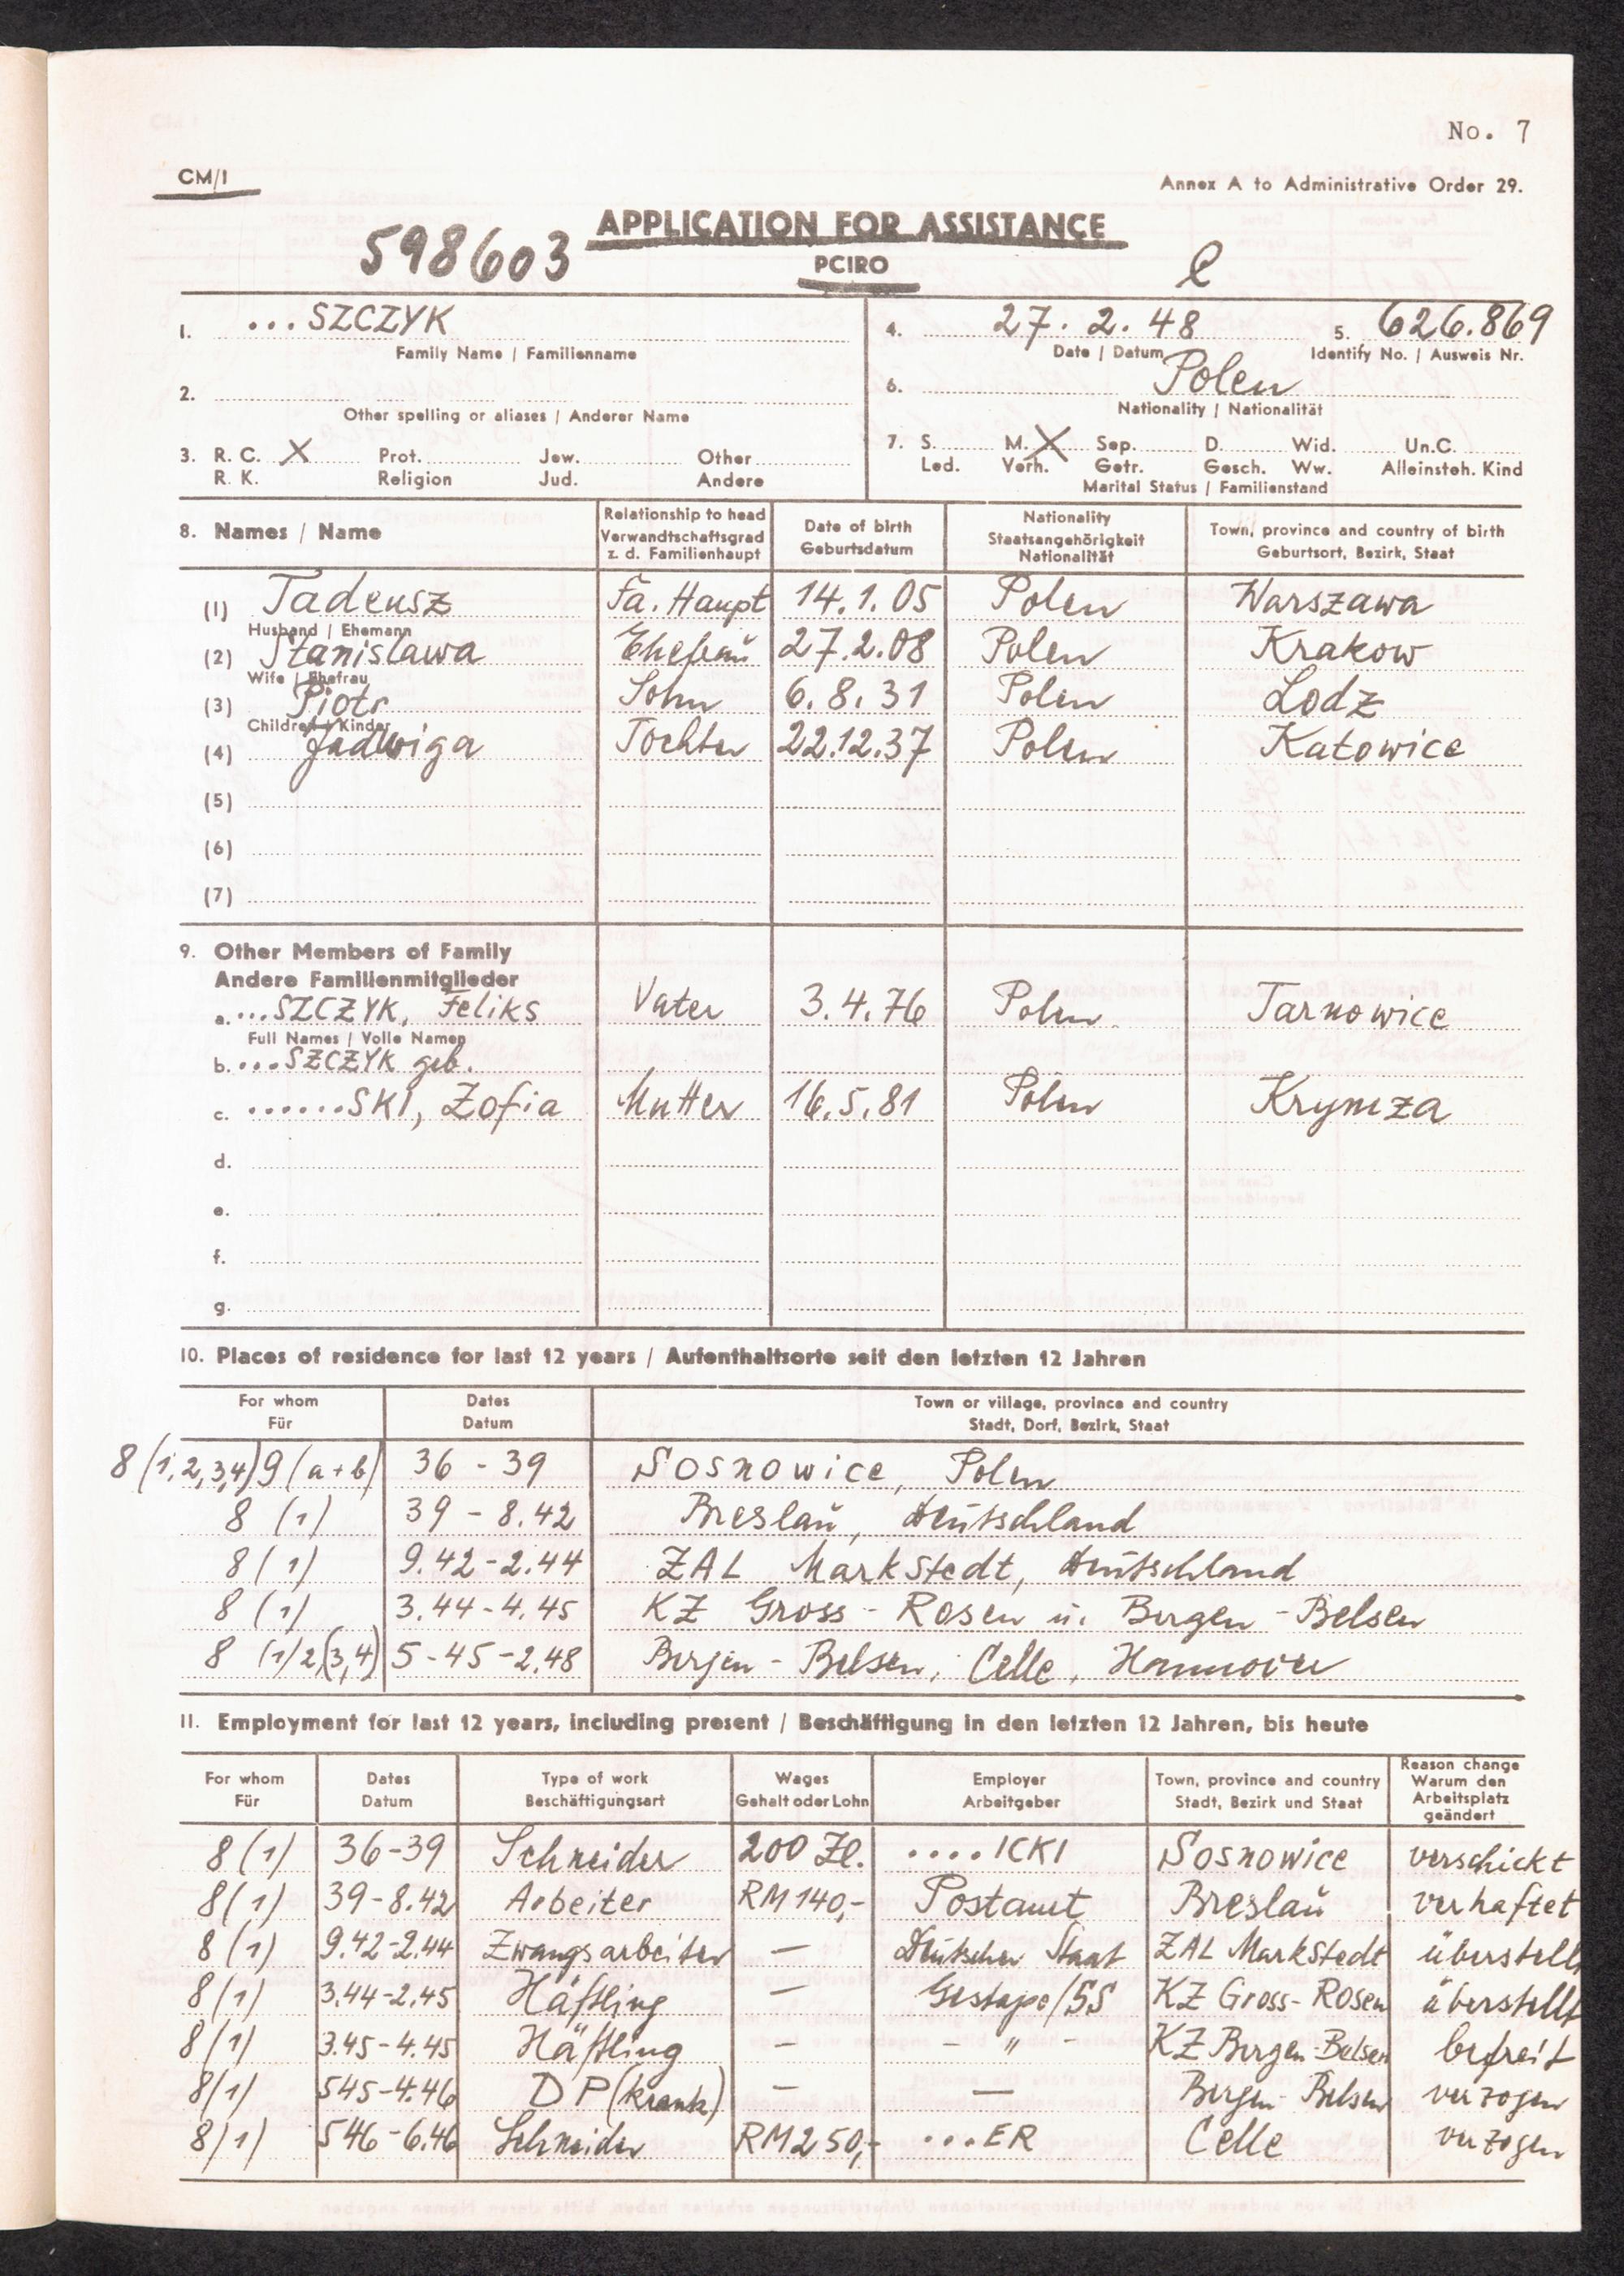 No. 7
CM/I
Annex A to Administrative Order 29.
APPLICATION FOR ASSISTANCE
598603
PCIRO
1. ...SZCZYK
Family Name / Familienname
4. 27. 2. 48 5. 626.869
Date / Datum Identify No. / Ausweis Nr.
2.
Other spelling or aliases / Anderer Name
6. Polen
Nationality / Nationalität
3. R. C. X Prot. Jew. Other
R. K. Religion Jud. Andere
7. S. M. X Sep. D. Wid. Un.C.
Led. Verh. Getr. Gesch. Ww. Alleinsteh. Kind
Marital Status / Familienstand
8. Names / Name
Relationship to head
Verwandtschaftsgrad
z. d. Familienhaupt
Date of birth
Geburtsdatum
Nationality
Staatsangehörigkeit
Nationalität
Town, province and country of birth
Geburtsort, Bezirk, Staat
(1) Tadeusz Fa. Haupt 14.1.05 Polen Warszawa
Husband / Ehemann
(2) Stanislawa Ehefrau 27.2.08 Polen Krakow
Wife / Ehefrau
(3) Piotr Sohn 6.8.31 Polen Lodz
Children / Kinder
(4) Jadwiga Tochter 22.12.37 Polen Katowice
(5)
(6)
(7)
9. Other Members of Family
Andere Familienmitglieder
a. ...SZCZYK, Feliks Vater 3.4.76 Polen Tarnowice
Full Names / Volle Namen
b. ...SZCZYK geb.
c. ......SKI, Zofia Mutter 16.5.81 Polen Krymza
d.
e.
f.
g.
10. Places of residence for last 12 years / Aufenthaltsorte seit den letzten 12 Jahren
For whom
Für
Dates
Datum
Town or village, province and country
Stadt, Dorf, Bezirk, Staat
8 (1,2,3,4) 9 (a+b) 36 - 39 Sosnowice, Polen
8 (1) 39 - 8.42 Breslau, Deutschland
8 (1) 9.42-2.44 ZAL MarkStedt, Deutschland
8 (1) 3.44-4.45 KZ Gross-Rosen u. Bergen-Belsen
8 (1/2(3,4) 5-45-2.48 Bergen-Belsen, Celle, Hannover
11. Employment for last 12 years, including present / Beschäftigung in den letzten 12 Jahren, bis heute
For whom
Für
Dates
Datum
Type of work
Beschäftigungsart
Wages
Gehalt oder Lohn
Employer
Arbeitgeber
Town, province and country
Stadt, Bezirk und Staat
Reason change
Warum den
Arbeitsplatz
geändert
8 (1) 36-39 Schneider 200 Zl. ....ICKI Sosnowice verschickt
8 (1) 39-8.42 Arbeiter RM 140,- Postamt Breslau verhaftet
8 (1) 9.42-2.44 Zwangsarbeiter — Deutscher Staat ZAL MarkStedt überstellt
8 (1) 3.44-2.45 Häftling — Gestapo/SS KZ Gross-Rosen überstellt
8 (1) 3.45-4.45 Häftling - - " - KZ Bergen-Belsen befreit
8 (1) 545-4.46 DP (krank) — — Bergen-Belsen verzogen
8 (1) 546-6.46 Schneider RM 250,- ...ER Celle verzogen